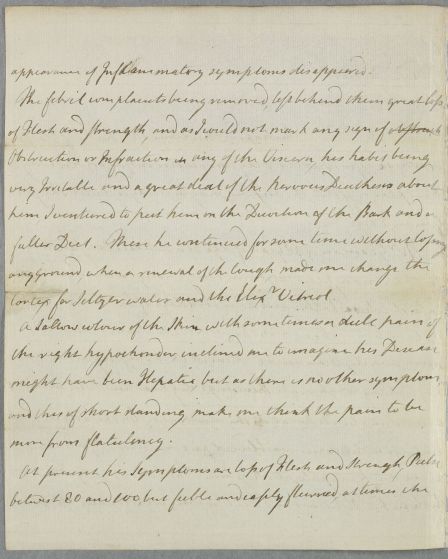 appearance of Inflammatory symptoms disappeared.
The febril complaints being removed left behind them great loss
of Flesh and strength, and as I could not mark any sign of obstruct
Obstruction or Infraction in any of the Viscera, his habit being
very Irritable and a great deal of the Nervous Diathesis about
him I ventured to put him on the Decoction of the Bark and a
fuller Diet. These he continued for some time without losing
any ground when a renewal of the Cough made me change the
Cortex for Seltzer water and the Elixr Vitriol
A Sallow colour of the Skin with sometimes a dull pain of
the right hypochonder inclined me to imagine his Disease
might have been Hepatic but as there is no other symptom
and this of short standing makes me think the pain to be
more from flatulency.
At present his Symptoms are loss of Flesh and Strength, Pulse
betwixt 80 and 100 but feeble and easily flurried, at times the